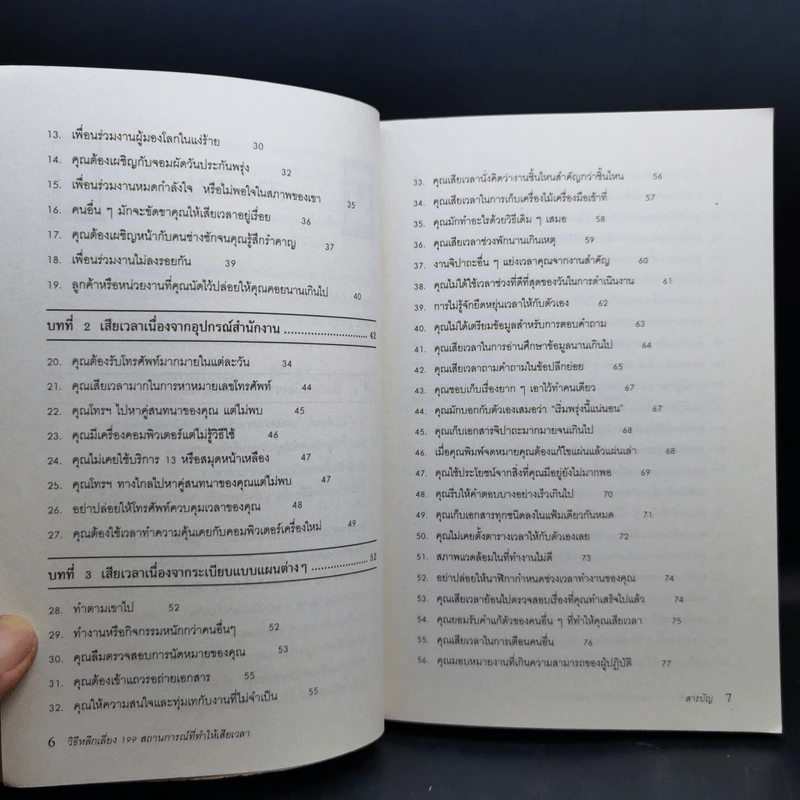 13. เพื่อนร่วมงานผู้มองโลกในแง่ร้าย 30
14. คุณต้องเผชิญกับจอมผัดวันประกันพรุ่ง 32
15. เพื่อนร่วมงานหมดกำลังใจ หรือไม่พอใจในสภาพของเขา 35
16. คนอื่น ๆ มักจะขัดขาคุณให้เสียเวลาอยู่เรื่อย 36
17. คุณต้องเผชิญหน้ากับคนช่างซักจนคุณรู้สึกรำคาญ 37
18. เพื่อนร่วมงานไม่ลงรอยกัน 39
19. ลูกค้าหรือหน่วยงานที่คุณนัดไว้ปล่อยให้คุณคอยนานเกินไป 40
บทที่ 2 เสียเวลาเนื่องจากอุปกรณ์สำนักงาน ........................ 42
20. คุณต้องรับโทรศัพท์มากมายในแต่ละวัน 34
21. คุณเสียเวลามากในการหาหมายเลขโทรศัพท์ 44
22. คุณโทรฯ ไปหาคู่สนทนาของคุณ แต่ไม่พบ 45
23. คุณมีเครื่องคอมพิวเตอร์แต่ไม่รู้วิธีใช้ 46
24. คุณไม่เคยใช้บริการ 13 หรือสมุดหน้าเหลือง 47
25. คุณโทรฯ ทางไกลไปหาคู่สนทนาของคุณแต่ไม่พบ 47
26. อย่าปล่อยให้โทรศัพท์ควบคุมเวลาของคุณ 48
27. คุณต้องใช้เวลาทำความคุ้นเคยกับคอมพิวเตอร์เครื่องใหม่ 49
บทที่ 3 เสียเวลาเนื่องจากระเบียบแบบแผนต่างๆ ................. 52
28. ทำตามเขาไป 52
29. ทำงานหรือกิจกรรมหนักกว่าคนอื่นๆ 52
30. คุณลืมตรวจสอบการนัดหมายของคุณ 53
31. คุณต้องเข้าแถวรอถ่ายเอกสาร 55
32. คุณให้ความสนใจและทุ่มเทกับงานที่ไม่จำเป็น 55
6 วิธีหลีกเลี่ยง 199 สถานการณ์ที่ทำให้เสียเวลา
33. คุณเสียเวลานั่งคิดว่างานชิ้นไหนสำคัญกว่าชิ้นไหน 56
34. คุณเสียเวลาในการเก็บเครื่องไม้เครื่องมือเข้าที่ 57
35. คุณมักทำอะไรด้วยวิธีเดิม ๆ เสมอ 58
36. คุณเสียเวลาช่วงพักนานเกินเหตุ 59
37. งานจิปาถะอื่น ๆ แย่งเวลาคุณจากงานสำคัญ 60
38. คุณไม่ได้ใช้เวลาช่วงที่ดีที่สุดของวันในการดำเนินงาน 61
39. การไม่รู้จักยืดหยุ่นเวลาให้กับตัวเอง 62
40. คุณไม่ได้เตรียมข้อมูลสำหรับการตอบคำถาม 63
41. คุณเสียเวลาในการอ่านศึกษาข้อมูลนานเกินไป 64
42. คุณเสียเวลาถามคำถามในข้อปลีกย่อย 65
43. คุณชอบเก็บเรื่องยาก ๆ เอาไว้ทำคนเดียว 67
44. คุณมักบอกกับตัวเองเสมอว่า "เริ่มพรุ่งนี้แน่นอน" 67
45. คุณเก็บเอกสารจิปาถะมากมายจนเกินไป 68
46. เมื่อคุณพิมพ์จดหมายคุณต้องแก้ไขแผ่นแล้วแผ่นเล่า 68
47. คุณใช้ประโยชน์จากสิ่งที่คุณมีอยู่ยังไม่มากพอ 69
48. คุณรีบให้คำตอบบางอย่างเร็วเกินไป 70
49. คุณเก็บเอกสารทุกชนิดลงในแฟ้มเดียวกันหมด 71
50. คุณไม่เคยตั้งตารางเวลาให้กับตัวเองเลย 72
51. สภาพแวดล้อมในที่ทำงานไม่ดี 73
52. อย่าปล่อยให้นาฬิกากำหนดช่วงเวลาทำงานของคุณ 74
53. คุณเสียเวลาย้อนไปตรวจสอบเรื่องที่คุณทำเสร็จไปแล้ว 74
54. คุณยอมรับคำแก้ตัวของคนอื่น ๆ ที่ทำให้คุณเสียเวลา 75
55. คุณเสียเวลาในการเตือนคนอื่น 76
56. คุณมอบหมายงานที่เกินความสามารถของผู้ปฏิบัติ 77
สารบัญ 7